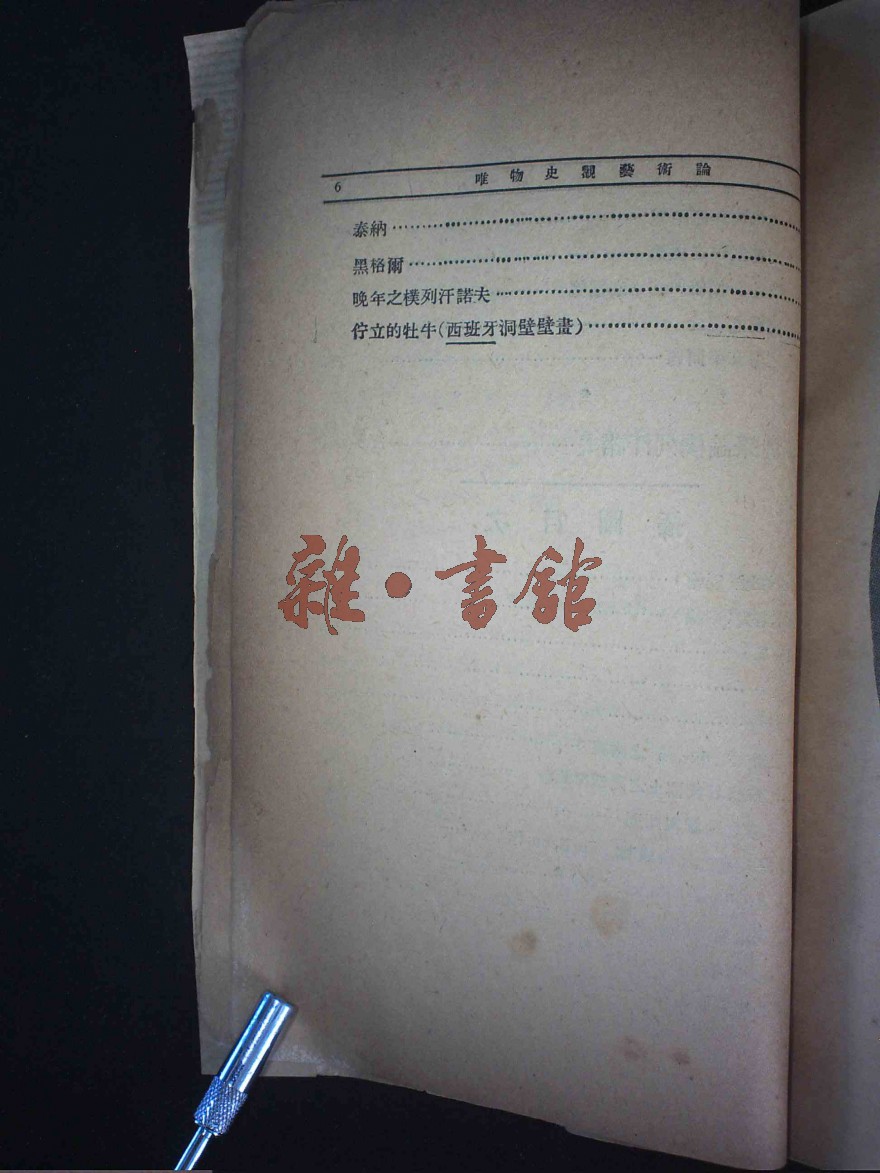 6 唯物史觀藝術論
泰納
黑格爾
晚年之樸列汗諾夫
佇立的牡牛(西班牙洞壁壁畫)
雜·書館